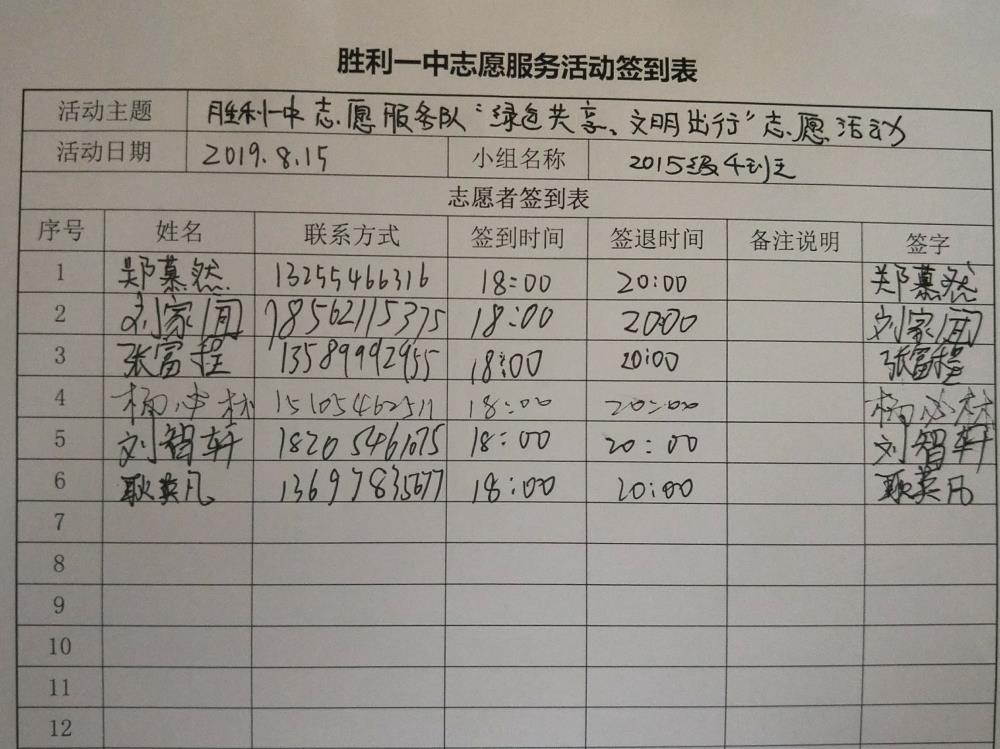 胜利一中志愿服务活动签到表
活动主题 胜利一中志愿服务队“绿色共享、文明出行”志愿活动
活动日期 2019.8.15 小组名称 2015级4班
志愿者签到表
序号 姓名 联系方式 签到时间 签退时间 备注说明 签字
1 郑慕然 13255466316 18:00 20:00 郑慕然
2 刘家闻 18562115375 18:00 20:00 刘家闻
3 张富程 13589992955 18:00 20:00 张富程
4 杨必林 15105462511 18:00 20:00 杨必林
5 刘智轩 18205461075 18:00 20:00 刘智轩
6 耿英凡 13697835677 18:00 20:00 耿英凡
7
8
9
10
11
12